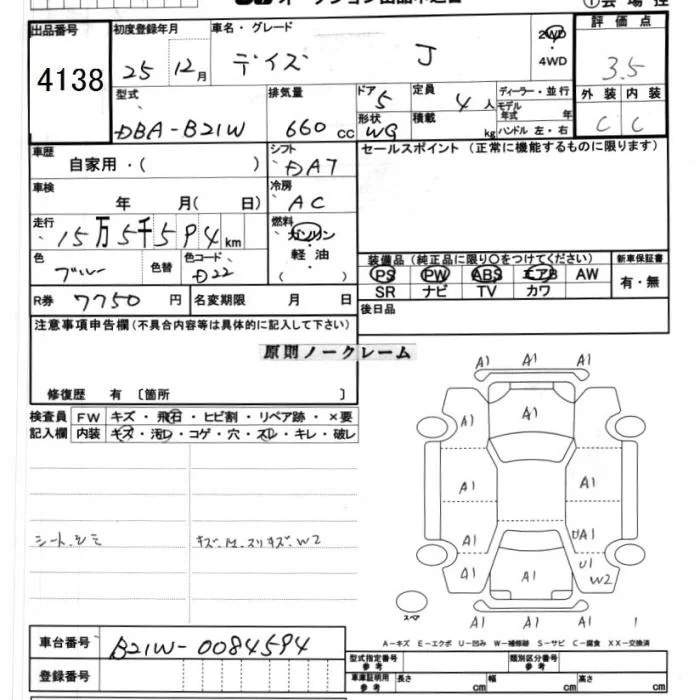 出品番号 4138
初度登録年月 25 12月
車名・グレード デイズ J
2WD
4WD
評価点 3.5
型式 DBA-B21W
排気量 660 cc
ドア 5
形状 WG
定員 4人
積載 kg
ディーラー・並行
モデル年式 年
ハンドル 左・右
外装 内装
C C
車歴 自家用・( )
シフト DAT
セールスポイント (正常に機能するものに限ります)
車検 年 月( 日)
冷房 AC
走行 15万5千594 km
燃料 ガソリン・軽油 ( )
色 ブルー 色替 色コード D22
装備品 (純正品に限り○をつけてください)
新車保証書
PS PW ABS エアB AW
有・無
SR ナビ TV カワ
R券 7750円 名変期限 月 日
後日品
注意事項申告欄(不具合内容等は具体的に記入して下さい)
原則ノークレーム
修復歴 有 〔箇所 〕
検査員 FW キズ・飛石・ヒビ割・リペア跡・×要
記入欄 内装 キズ・汚レ・コゲ・穴・スレ・キレ・破レ
シート.シミ
キズ.M.スリキズ.W2
A1 A1 A1
A1 A1 A1
A1 A1
A1 UA1
U1
A1 A1 W2
A1 A1 A1
スペア
A-キズ E-エクボ U-凹み W-補修跡 S-サビ C-腐食 XX-交換済
車台番号 B21W-0084594
登録番号
型式指定番号 参考 類別区分番号 参考
車庫証明用 参考 長さ cm 幅 cm 高さ cm